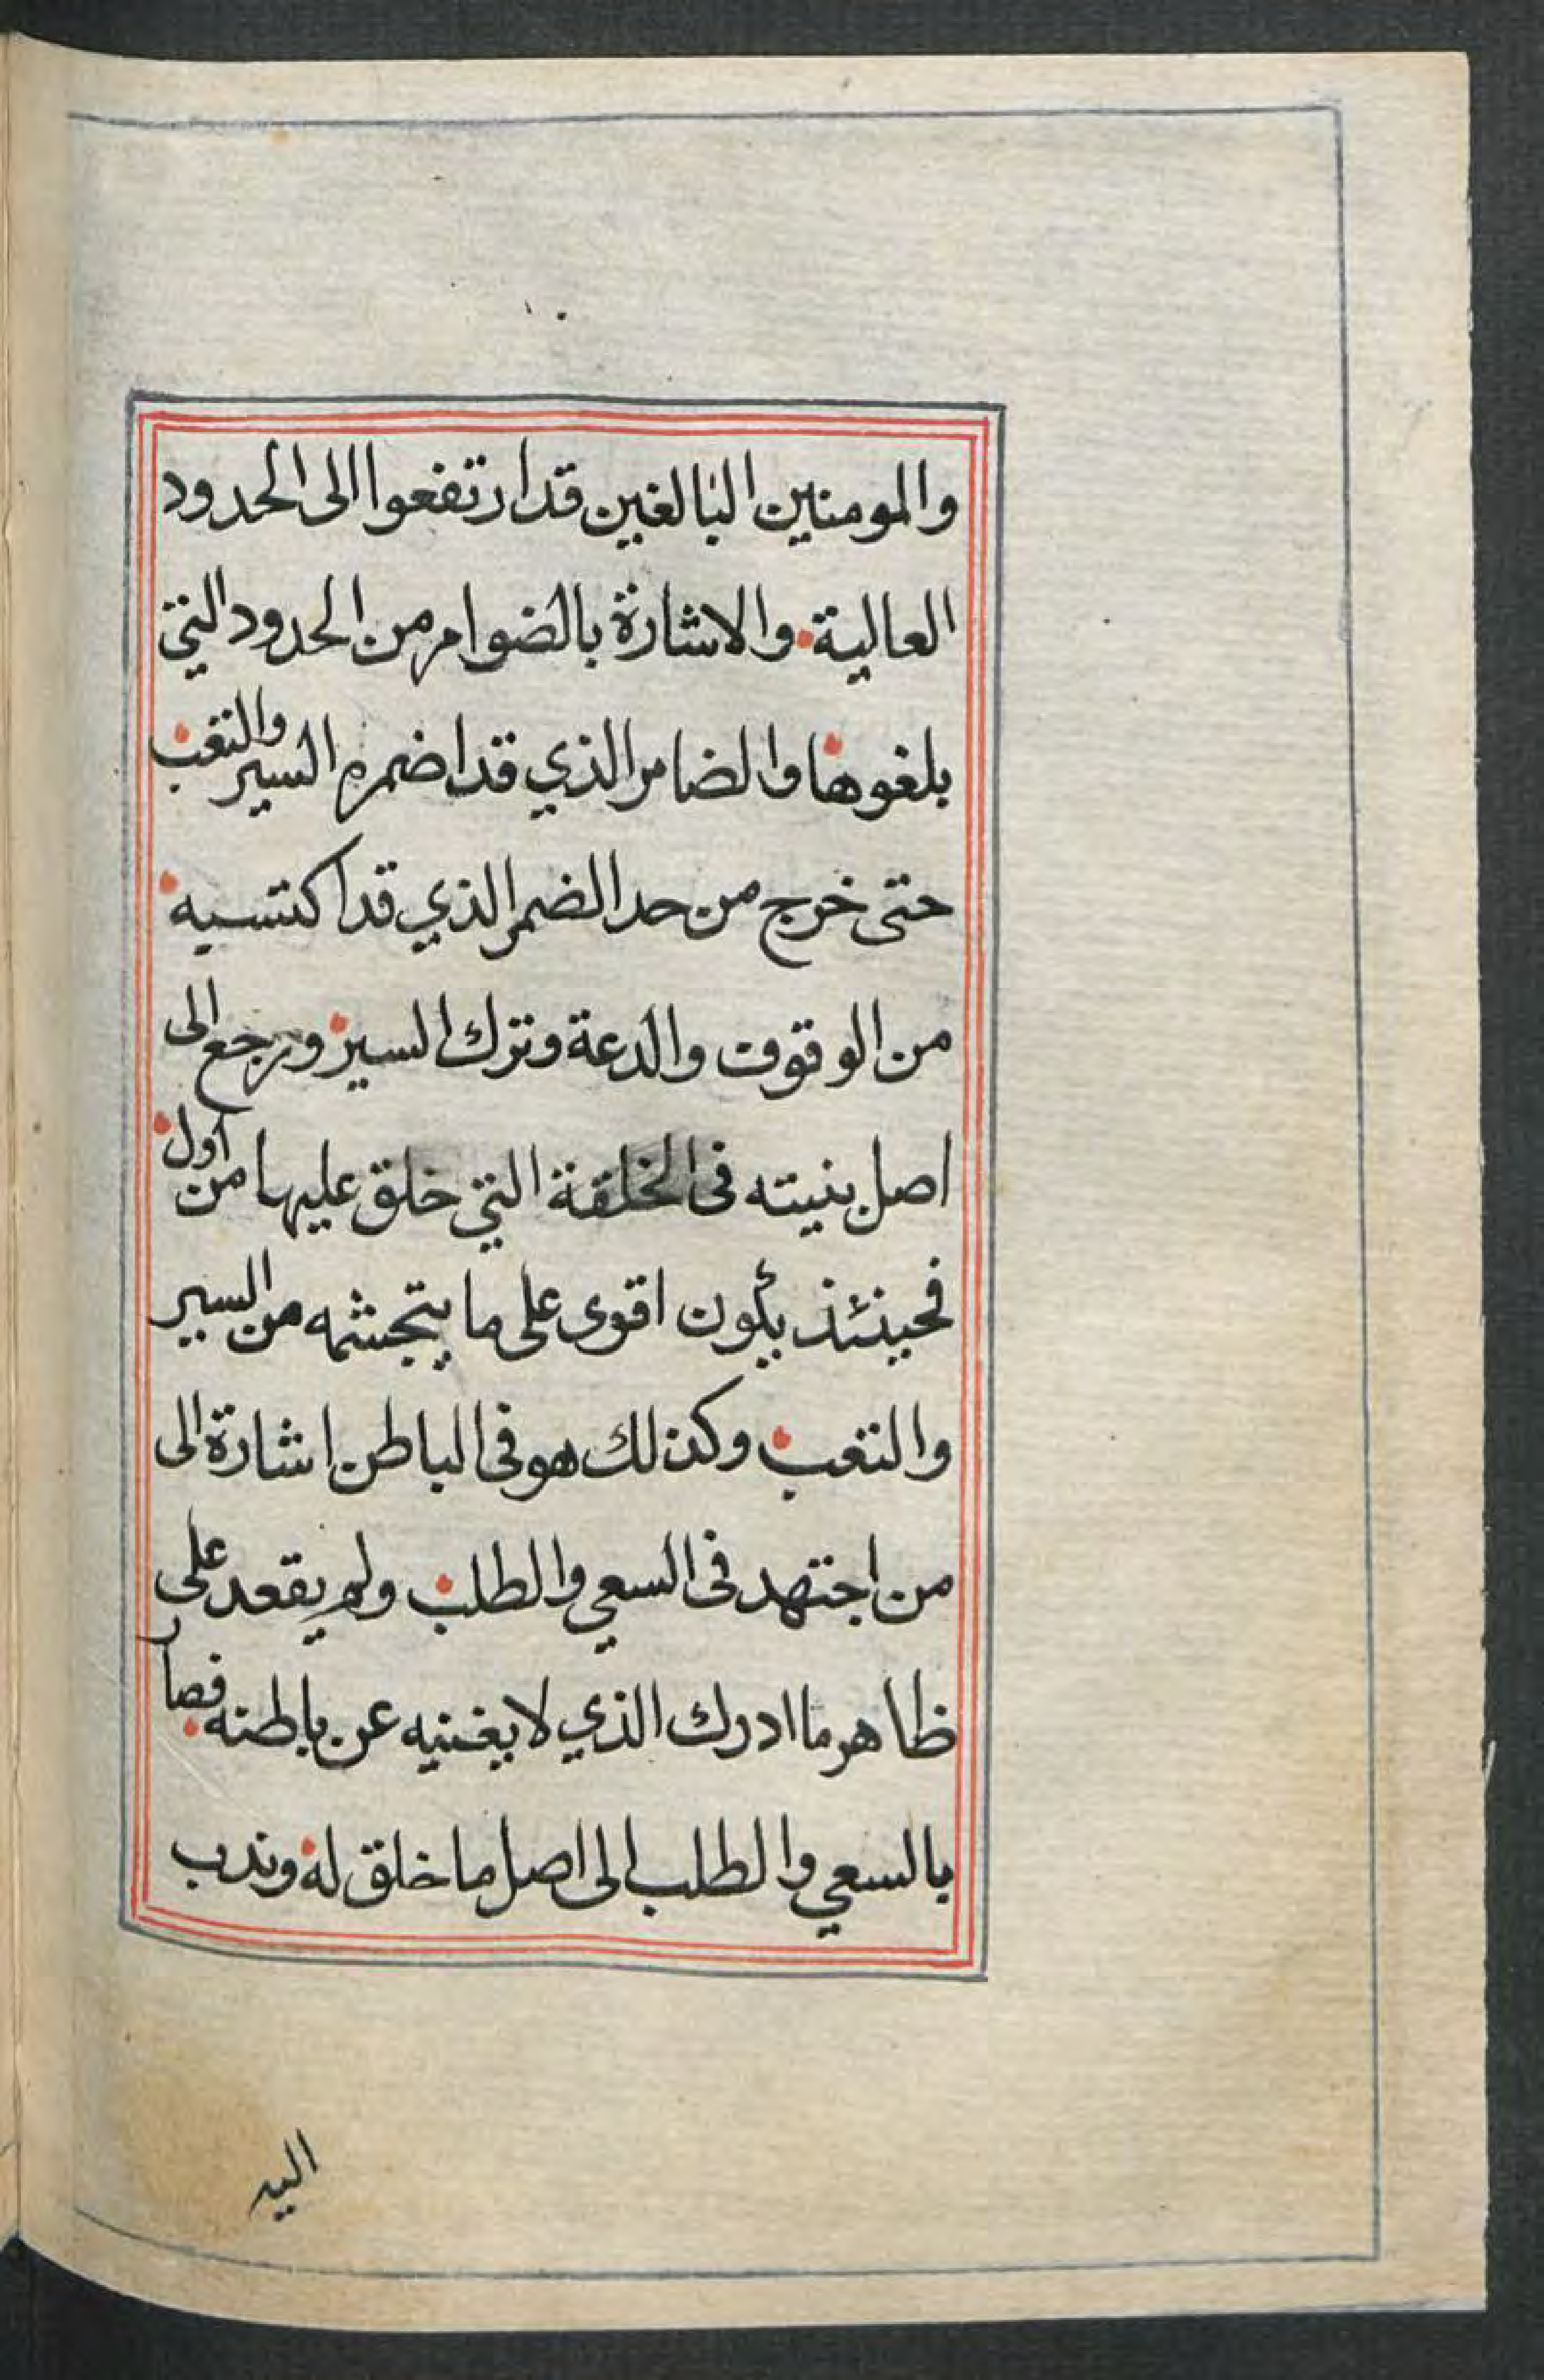 والمومنين البالغين قد ارتفعوا الى الحدود
العالية. والاشارة بالضوامر من الحدود التي
بلغوها والضامر الذي قد اضمره السير والتعب
حتى خرج من حد الضمر الذي قد اكتسبه
من الوقوف والدعة وترك السير ورجع الى
اصل بنيته في الخلقة التي خلق عليها من اول
فحينئذ يكون اقوى على ما يتجشمه من السير
والتعب وكذلك هو في الباطن اشارة الى
من اجتهد في السعي والطلب ولم يقعد على
ظاهر ما ادرك الذي لا يغنيه عن باطنه فصار
بالسعي والطلب الى اصل ما خلق له وندب
اليه